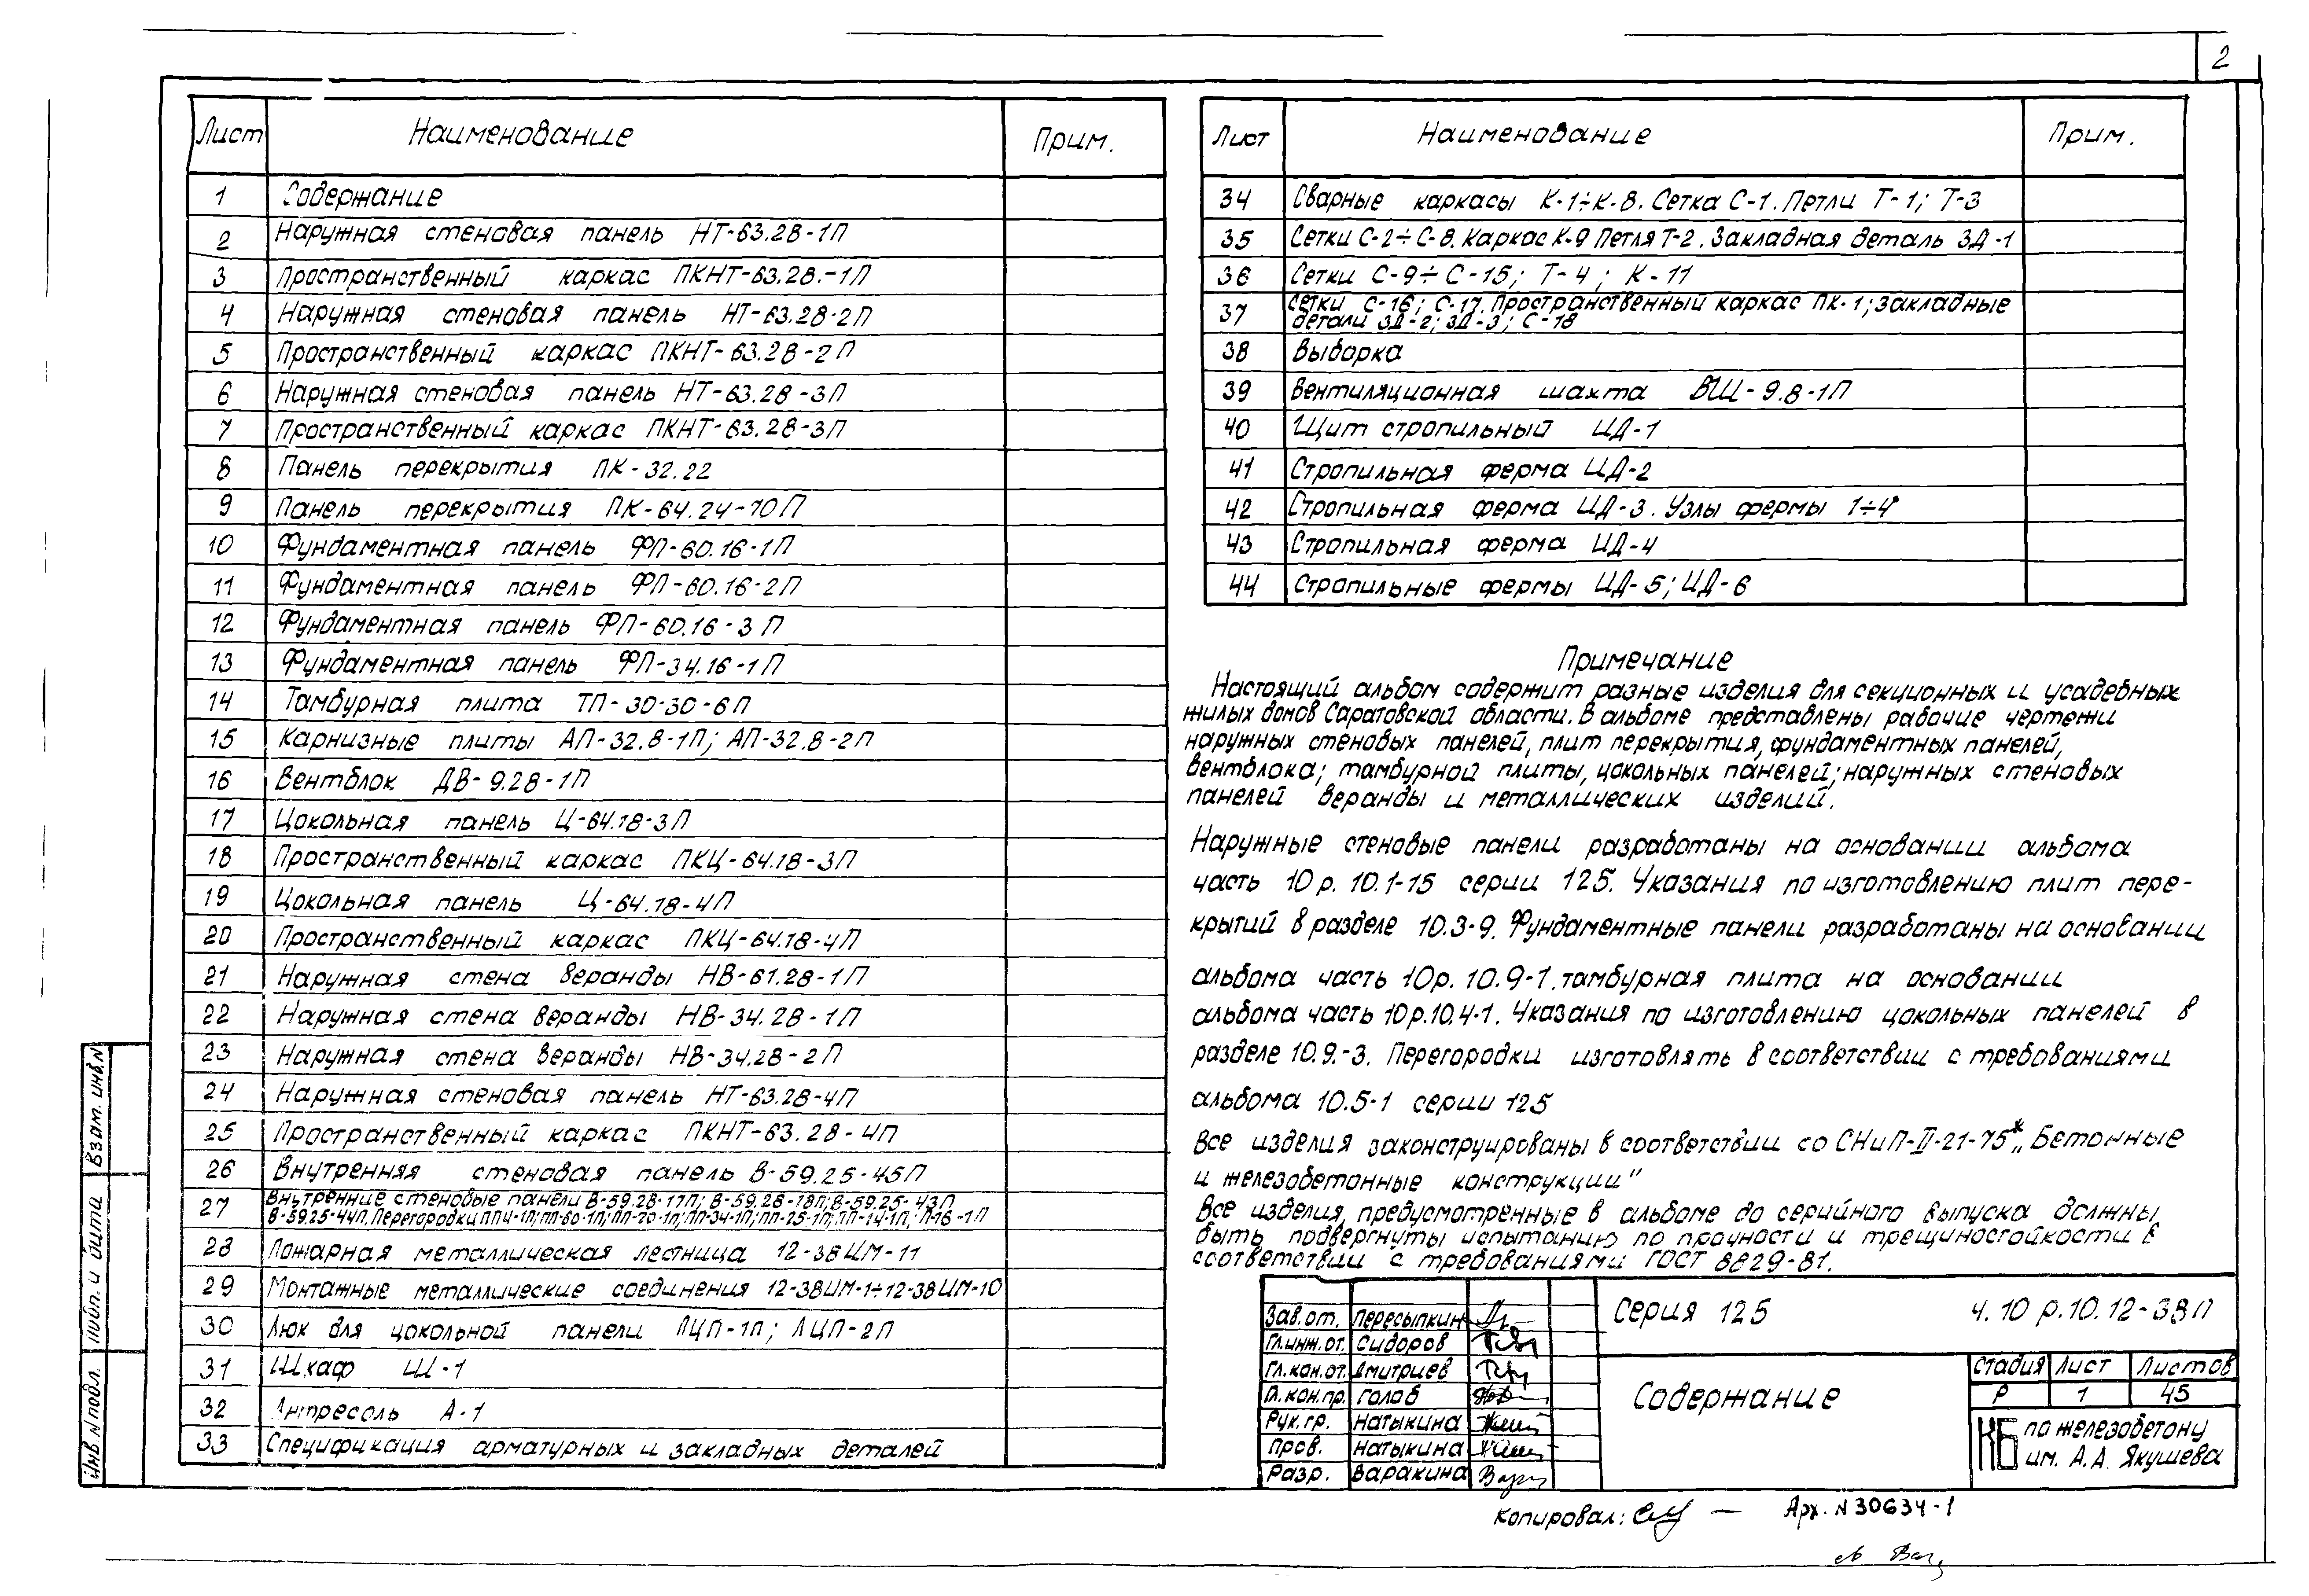 2
Лист Наименование Прим.
1 Содержание
2 Наружная стеновая панель НТ-63.28-1П
3 Пространственный каркас ПКНТ-63.28.-1П
4 Наружная стеновая панель НТ-63.28-2П
5 Пространственный каркас ПКНТ-63.28-2П
6 Наружная стеновая панель НТ-63.28-3П
7 Пространственный каркас ПКНТ-63.28-3П
8 Панель перекрытия ПК-32.22
9 Панель перекрытия ПК-64.24-10П
10 Фундаментная панель ФП-60.16-1П
11 Фундаментная панель ФП-60.16-2П
12 Фундаментная панель ФП-60.16-3П
13 Фундаментная панель ФП-34.16-1П
14 Тамбурная плита ТП-30-30-6П
15 Карнизные плиты АП-32.8-1П; АП-32.8-2П
16 Вентблок ДВ-9.28-1П
17 Цокольная панель Ц-64.18-3П
18 Пространственный каркас ПКЦ-64.18-3П
19 Цокольная панель Ц-64.18-4П
20 Пространственный каркас ПКЦ-64.18-4П
21 Наружная стена веранды НВ-61.28-1П
22 Наружная стена веранды НВ-34.28-1П
23 Наружная стена веранды НВ-34.28-2П
24 Наружная стеновая панель НТ-63.28-4П
25 Пространственный каркас ПКНТ-63.28-4П
26 Внутренняя стеновая панель В-59.25-45П
27 Внутренние стеновые панели В-59.28-17П; В-59.28-18П; В-59.25-43П
В-59.25-44П. Перегородки ПП4-1П; ПП-60-1П; ПП-20-1П; ПП-34-1П; ПП-25-1П; ПП-14-1П; П-16-1П
28 Пожарная металлическая лестница 12-38ИМ-11
29 Монтажные металлические соединения 12-38ИМ-1÷12-38ИМ-10
30 Люк для цокольной панели ЛЦП-1П; ЛЦП-2П
31 Шкаф Ш-1
32 Антресоль А-1
33 Спецификация арматурных и закладных деталей
Лист Наименование Прим.
34 Сварные каркасы К-1÷К-8. Сетка С-1. Петли Т-1; Т-3
35 Сетки С-2÷С-8. Каркас К-9 Петля Т-2. Закладная деталь ЗД-1
36 Сетки С-9÷С-15; Т-4; К-11
37 Сетки С-16; С-17. Пространственный каркас ПК-1; Закладные
детали ЗД-2; ЗД-3; С-18
38 Выборка
39 Вентиляционная шахта ВШ-9.8-1П
40 Щит стропильный ИД-1
41 Стропильная ферма ИД-2
42 Стропильная ферма ИД-3. Узлы фермы 1÷4
43 Стропильная ферма ИД-4
44 Стропильные фермы ИД-5; ИД-6
Примечание
Настоящий альбом содержит разные изделия для секционных и усадебных
жилых домов Саратовской области. В альбоме представлены рабочие чертежи
наружных стеновых панелей, плит перекрытия, фундаментных панелей,
вентблока; тамбурной плиты, цокольных панелей; наружных стеновых
панелей веранды и металлических изделий.
Наружные стеновые панели разработаны на основании альбома
часть 10 р. 10.1-15 серии 125. Указания по изготовлению плит пере-
крытий в разделе 10.3-9. Фундаментные панели разработаны на основании
альбома часть 10р. 10.9-1. тамбурная плита на основании
альбома часть 10р.10.4-1. Указания по изготовлению цокольных панелей в
разделе 10.9.-3. Перегородки изготовлять в соответствии с требованиями
альбома 10.5-1 серии 125
Все изделия законструированы в соответствии со СНиП-II-21-75* „Бетонные
и железобетонные конструкции"
Все изделия, предусмотренные в альбоме до серийного выпуска должны
быть подвергнуты испытанию по прочности и трещиностойкости в
соответствии с требованиями ГОСТ 8829-81.
Зав.от. Пересыпкин
Гл.инж.от. Сидоров
Гл.кон.от. Дмитриев
Гл.кон.пр. Голоб
Рук.гр. Натыкина
Пров. Натыкина
Разр. Варакина
Серия 125 ч.10 р.10.12-38П
Содержание
Стадия Лист Листов
Р 1 45
КБ по железобетону
им. А.А. Якушева
Копировал: Арх. N 30634-1
Взам. инв.N
Подп. и дата
Инв.N подл.